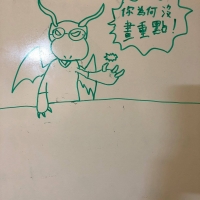 你為何沒
畫重點!